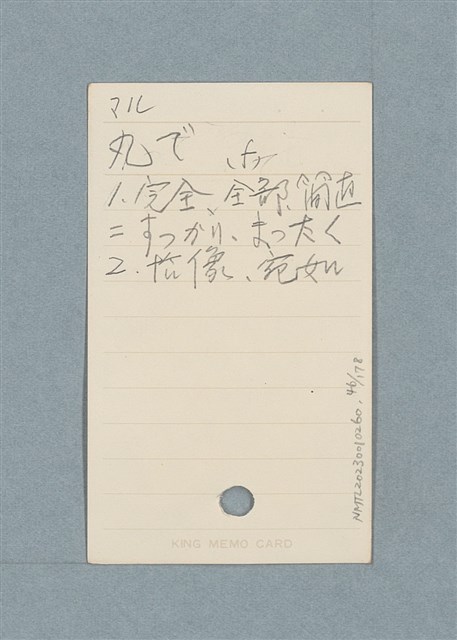 マル
丸で
1.完全、全部、簡直
=すっかり、まったく
2.恰像、宛如
NMTL20230010260, 46/178
KING MEMO CARD